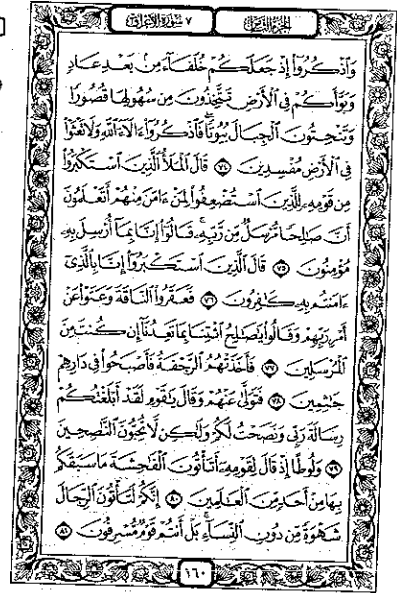 الجزء الثامن
٧ سورة الأعراف
وَٱذْكُرُوٓا۟ إِذْ جَعَلَكُمْ خُلَفَآءَ مِنۢ بَعْدِ عَادٍ
وَبَوَّأَكُمْ فِى ٱلْأَرْضِ تَتَّخِذُونَ مِن سُهُولِهَا قُصُورًا
وَتَنْحِتُونَ ٱلْجِبَالَ بُيُوتًا ۖ فَٱذْكُرُوٓا۟ ءَالَآءَ ٱللَّهِ وَلَا تَعْثَوْا۟
فِى ٱلْأَرْضِ مُفْسِدِينَ ٧٤ قَالَ ٱلْمَلَأُ ٱلَّذِينَ ٱسْتَكْبَرُوا۟
مِن قَوْمِهِۦ لِلَّذِينَ ٱسْتُضْعِفُوا۟ لِمَنْ ءَامَنَ مِنْهُمْ أَتَعْلَمُونَ
أَنَّ صَٰلِحًا مُّرْسَلٌ مِّن رَّبِّهِۦ ۚ قَالُوٓا۟ إِنَّا بِمَآ أُرْسِلَ بِهِۦ
مُؤْمِنُونَ ٧٥ قَالَ ٱلَّذِينَ ٱسْتَكْبَرُوٓا۟ إِنَّا بِٱلَّذِىٓ
ءَامَنتُم بِهِۦ كَٰفِرُونَ ٧٦ فَعَقَرُوا۟ ٱلنَّاقَةَ وَعَتَوْا۟ عَنْ
أَمْرِ رَبِّهِمْ وَقَالُوا۟ يَٰصَٰلِحُ ٱئْتِنَا بِمَا تَعِدُنَآ إِن كُنتَ مِنَ
ٱلْمُرْسَلِينَ ٧٧ فَأَخَذَتْهُمُ ٱلرَّجْفَةُ فَأَصْبَحُوا۟ فِى دَارِهِمْ
جَٰثِمِينَ ٧٨ فَتَوَلَّىٰ عَنْهُمْ وَقَالَ يَٰقَوْمِ لَقَدْ أَبْلَغْتُكُمْ
رِسَالَةَ رَبِّى وَنَصَحْتُ لَكُمْ وَلَٰكِن لَّا تُحِبُّونَ ٱلنَّٰصِحِينَ
٧٩ وَلُوطًا إِذْ قَالَ لِقَوْمِهِۦٓ أَتَأْتُونَ ٱلْفَٰحِشَةَ مَا سَبَقَكُم
بِهَا مِنْ أَحَدٍ مِّنَ ٱلْعَٰلَمِينَ ٨٠ إِنَّكُمْ لَتَأْتُونَ ٱلرِّجَالَ
شَهْوَةً مِّن دُونِ ٱلنِّسَآءِ ۚ بَلْ أَنتُمْ قَوْمٌ مُّسْرِفُونَ ٨١
١٦٠